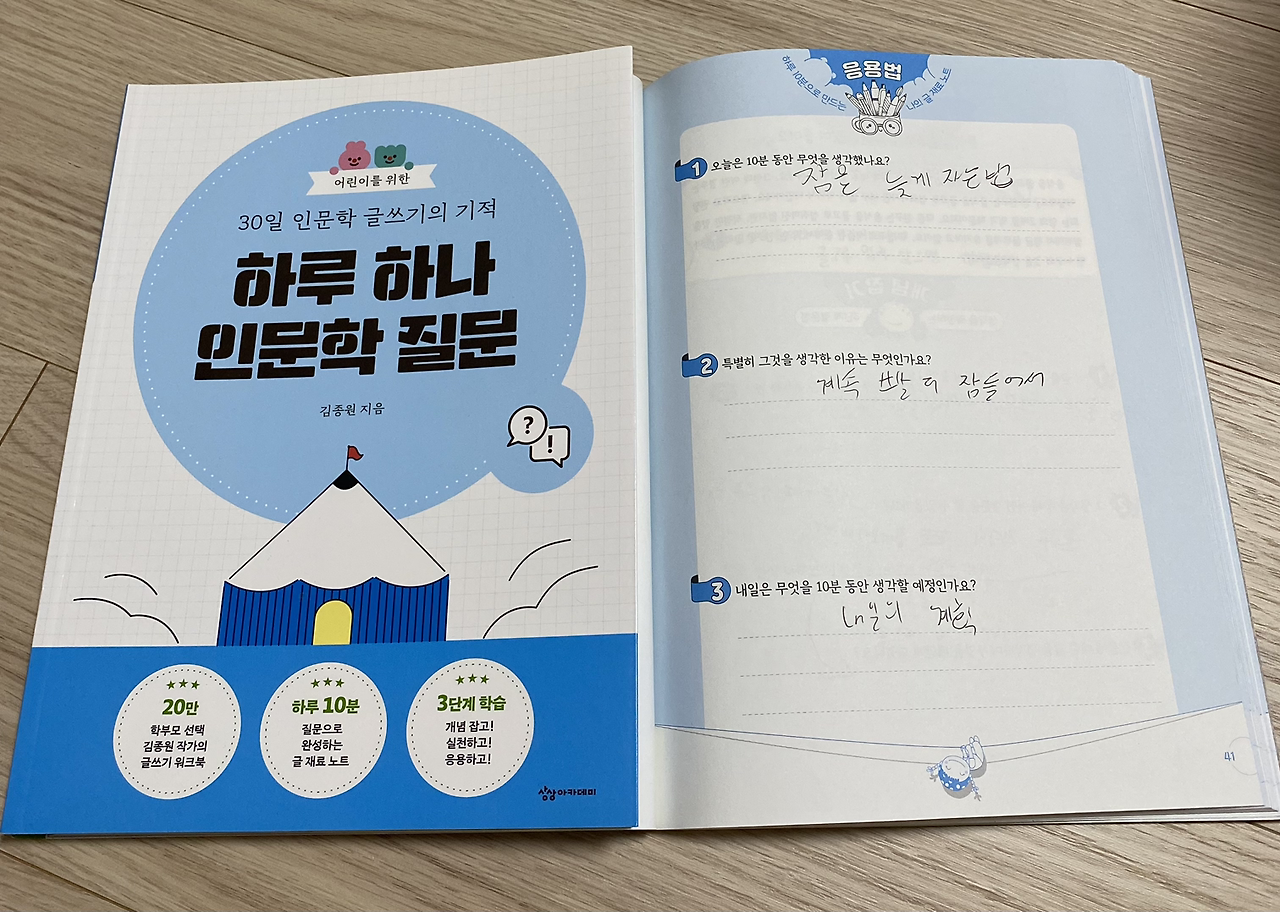 어린이를 위한
30일 인문학 글쓰기의 기적
하루 하나
인문학 질문
김종원 지음
?
!
★★★
20만
학부모 선택
김종원 작가의
글쓰기 워크북
★★★
하루 10분
질문으로
완성하는
글 재료 노트
★★★
3단계 학습
개념 잡고!
실천하고!
응용하고!
상상아카데미
하루 10분으로 만드는
응용법
나의 글 재료 노트
1 오늘은 10분 동안 무엇을 생각했나요?
잠을 늦게 자는법
2 특별히 그것을 생각한 이유는 무엇인가요?
계속 빨리 잠들어서
3 내일은 무엇을 10분 동안 생각할 예정인가요?
내일의 계획
41